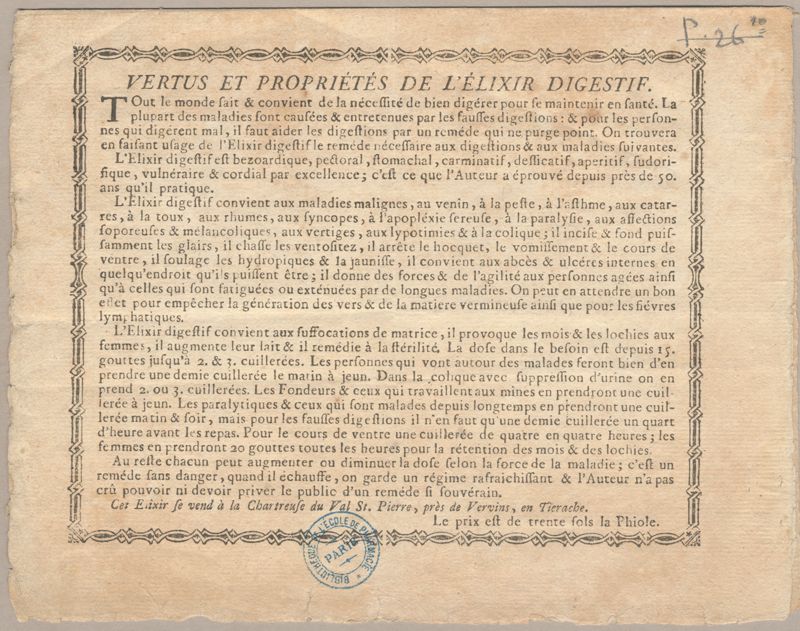 P. 26
VERTUS ET PROPRIÉTÉS DE L'ÉLIXIR DIGESTIF.
TOut le monde sait & convient de la nécessité de bien digérer pour se maintenir en santé. La
plupart des maladies sont causées & entretenues par les fausses digestions : & pour les person-
nes qui digérent mal, il faut aider les digestions par un reméde qui ne purge point. On trouvera
en faisant usage de l'Elixir digestif le reméde nécessaire aux digestions & aux maladies suivantes.
L'Elixir digestif est bezoardique, pectoral, stomachal, carminatif, dessicatif, aperitif, sudori-
fique, vulnéraire & cordial par excellence ; c'est ce que l'Auteur a éprouvé depuis près de 50.
ans qu'il pratique.
L'Élixir digestif convient aux maladies malignes, au venin, à la peste, à l'asthme, aux catar-
res, à la toux, aux rhumes, aux syncopes, à l'apopléxie sereuse, à la paralysie, aux affections
soporeuses & mélancoliques, aux vertiges, aux lypotimies & à la colique ; il incise & fond puis-
samment les glairs, il chasse les ventositez, il arrête le hocquet, le vomissement & le cours de
ventre, il soulage les hydropiques & la jaunisse, il convient aux abcés & ulcéres internes en
quelqu'endroit qu'ils puissent être ; il donne des forces & de l'agilité aux personnes agées ainsi
qu'à celles qui sont fatiguées ou exténuées par de longues maladies. On peut en attendre un bon
effet pour empêcher la génération des vers & de la matiere vermineuse ainsi que pour les fiévres
lymphatiques.
L'Elixir digestif convient aux suffocations de matrice, il provoque les mois & les lochies aux
femmes, il augmente leur lait & il remédie à la stérilité. La dose dans le besoin est depuis 15.
gouttes jusqu'à 2. & 3. cuillerées. Les personnes qui vont autour des malades feront bien d'en
prendre une demie cuillerée le matin à jeun. Dans la colique avec suppression d'urine on en
prend 2. ou 3. cuillerées. Les Fondeurs & ceux qui travaillent aux mines en prendront une cuil-
lerée à jeun. Les paralytiques & ceux qui sont malades depuis longtemps en prendront une cuil-
lerée matin & soir, mais pour les fausses digestions il n'en faut qu'une demie cuillerée un quart
d'heure avant les repas. Pour le cours de ventre une cuillerée de quatre en quatre heures ; les
femmes en prendront 20 gouttes toutes les heures pour la rétention des mois & des lochies.
Au reste chacun peut augmenter ou diminuer la dose selon la force de la maladie ; c'est un
reméde sans danger, quand il échauffe, on garde un régime rafraichissant & l'Auteur n'a pas
crû pouvoir ni devoir priver le public d'un reméde si souvérain.
Cet Elixir se vend à la Chartreuse du Val St. Pierre, près de Vervins, en Tierache.
Le prix est de trente sols la Phiole.
BIBLIOTHEQUE DE L'ÉCOLE DE PHARMACIE
PARIS